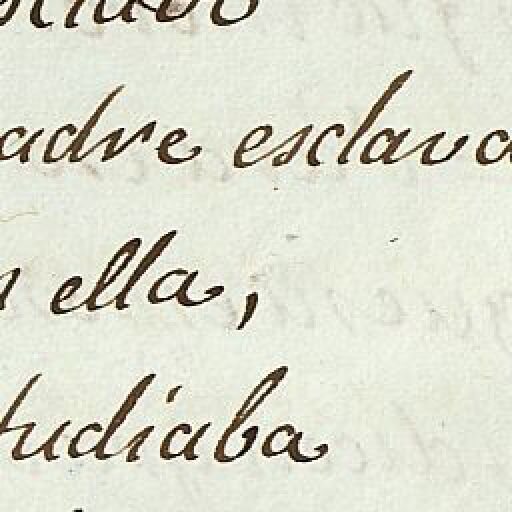 adre esclava
ella,
tudiaba